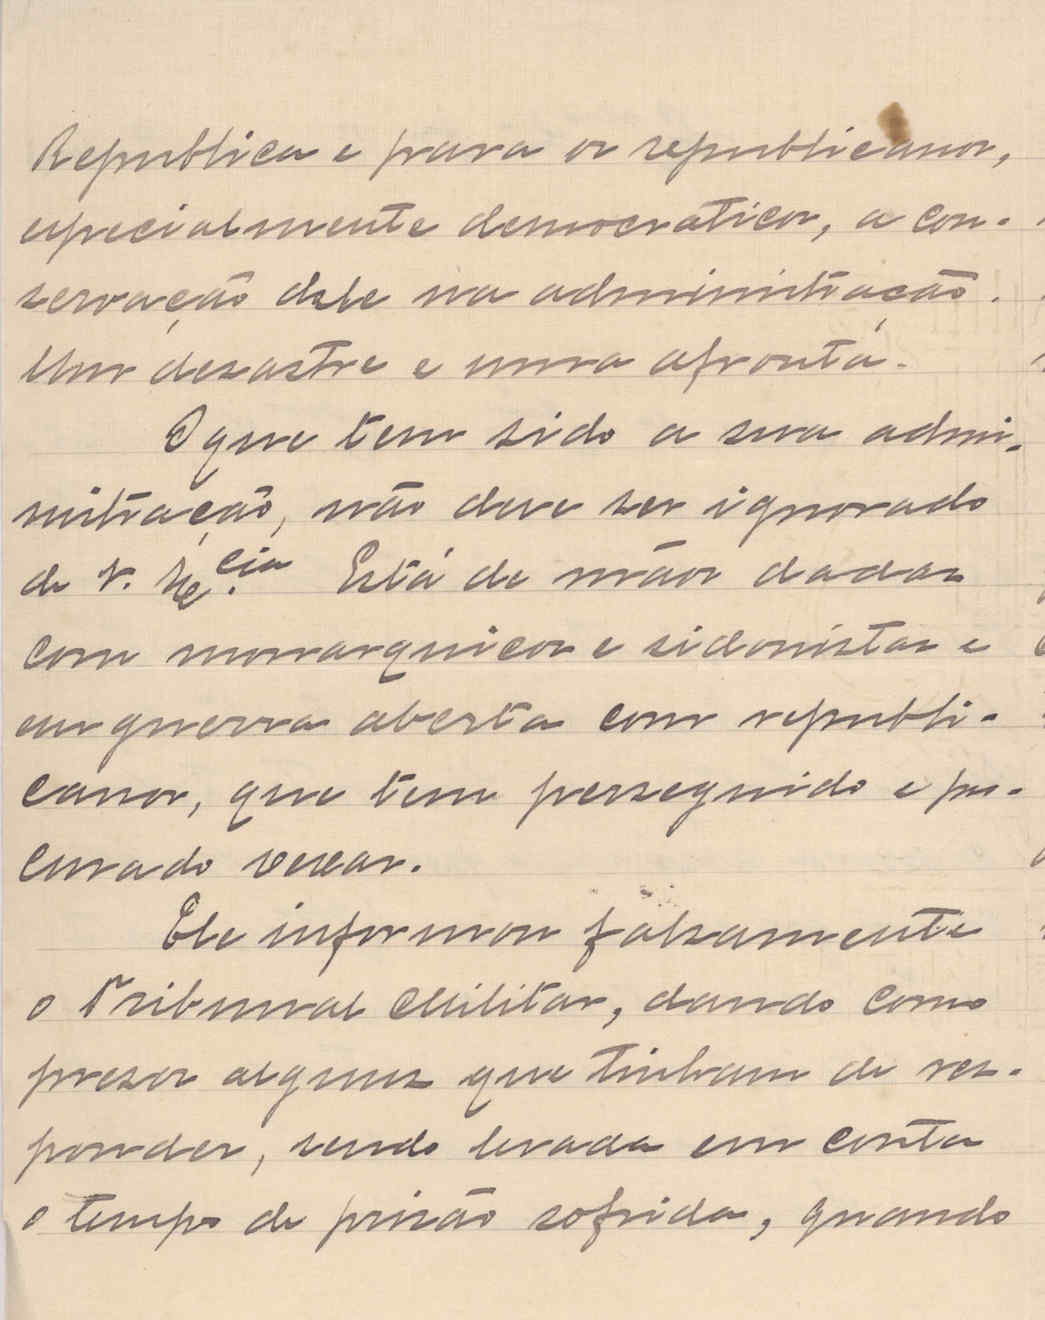 Republica e para os republicanos,
especialmente democraticos, a con-
servação dele na administração.
Um desastre e uma afronta.
O que tem sido a sua admi-
nistração, não deve ser ignorado
de V. Ex.cia Está de mãos dadas
com monarquicos e sidonistas e
em guerra aberta com republi-
canos, que tem perseguido e pro-
curado vexar.
Ele informou falsamente
o Tribunal Militar, dando como
presos alguns que tinham de res-
ponder, sendo levada em conta
o tempo de prisão sofrida, quando